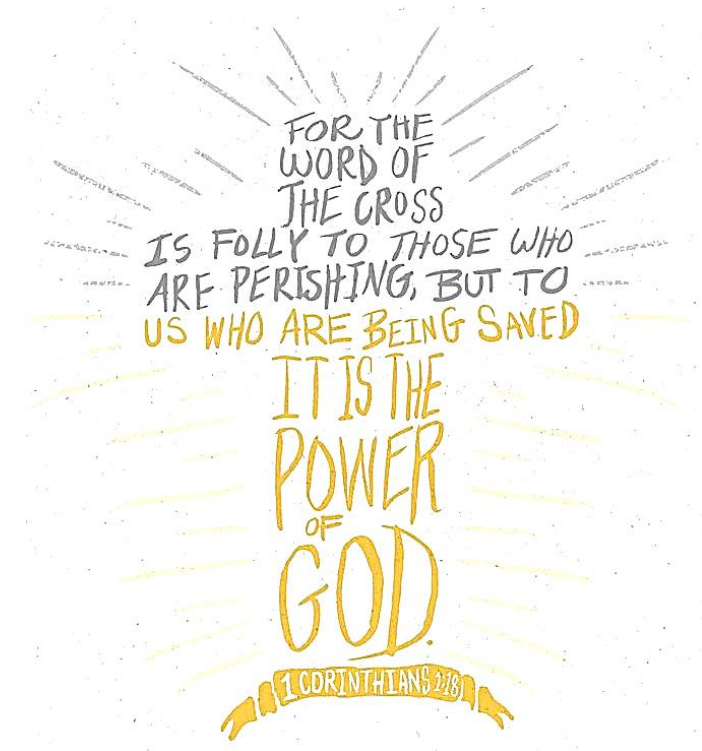 FOR THE
WORD OF
THE CROSS
IS FOLLY TO THOSE WHO
ARE PERISHING, BUT TO
US WHO ARE BEING SAVED
IT IS THE
POWER
OF
GOD.
1 CORINTHIANS 1:18